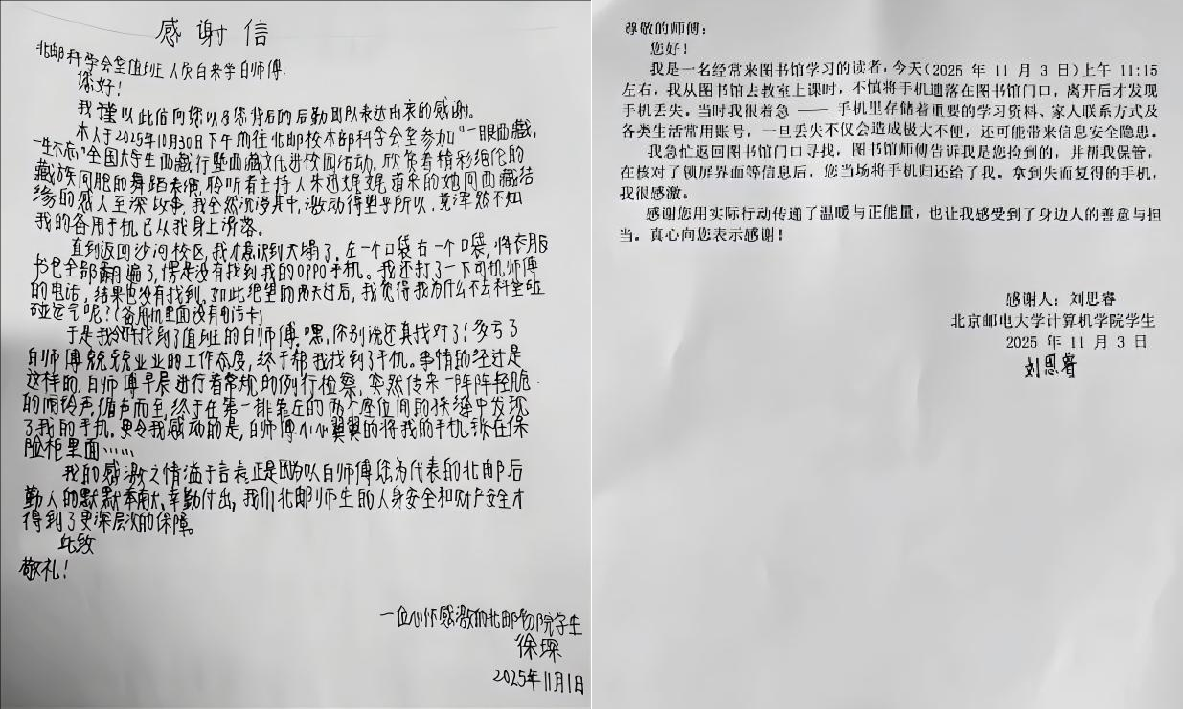 感谢信
北邮科学会堂值班人员白来学白师傅
您好！
我谨以此信向您以及您背后的后勤团队表达由衷的感谢。
本人于2025年10月30日下午前往北邮校本部科学会堂参加“一眼西藏，
一生不忘”全国大学生西藏行暨西藏文化进校园活动，欣赏着精彩绝伦的
藏族同胞的舞蹈表演，聆听着主持人朱迅娓娓道来的她同西藏结
缘的感人至深故事，我全然沉浸其中，激动得忘乎所以，竟浑然不知
我的备用手机已从我身上滑落。
直到返回沙河校区，我才意识到大塌了。左一个口袋右一个口袋，将衣服
书包全部翻遍了，愣是没有找到我的OPPO手机。我还打了一下司机师傅
的电话，结果也没有找到，如此绝望的两天过后，我觉得我为什么不去科堂碰
碰运气呢？（备用机里面没有电话卡）
于是我终于找到了值班的白师傅。嘿，你别说还真找对了！多亏了
白师傅兢兢业业的工作态度，终于帮我找到了手机。事情的经过是
这样的，白师傅早晨进行着常规的例行检察，突然传来一阵阵轻脆
的闹铃声，循声而至，终于在第一排靠左的两个座位间的狭缝中发现
了我的手机。更令我感动的是，白师傅小心翼翼的将我的手机锁在保
险柜里面……
我的感激之情溢于言表，正是因为以白师傅您为代表的北邮后
勤人的默默奉献、辛勤付出，我们北邮师生的人身安全和财产安全才
得到了更深层次的保障。
此致
敬礼！
一位心怀感激的北邮学院学生
徐琛
2025年11月1日
尊敬的师傅：
您好！
我是一名经常来图书馆学习的读者，今天(2025 年 11 月 3 日)上午 11:15
左右，我从图书馆去教室上课时，不慎将手机遗落在图书馆门口，离开后才发现
手机丢失。当时我很着急 —— 手机里存储着重要的学习资料、家人联系方式及
各类生活常用账号，一旦丢失不仅会造成极大不便，还可能带来信息安全隐患。
我急忙返回图书馆门口寻找，图书馆师傅告诉我是您捡到的，并帮我保管，
在核对了锁屏界面等信息后，您当场将手机归还给了我。拿到失而复得的手机，
我很感激。
感谢您用实际行动传递了温暖与正能量，也让我感受到了身边人的善意与担
当。真心向您表示感谢！
感谢人：刘思睿
北京邮电大学计算机学院学生
2025 年 11 月 3 日
刘思睿